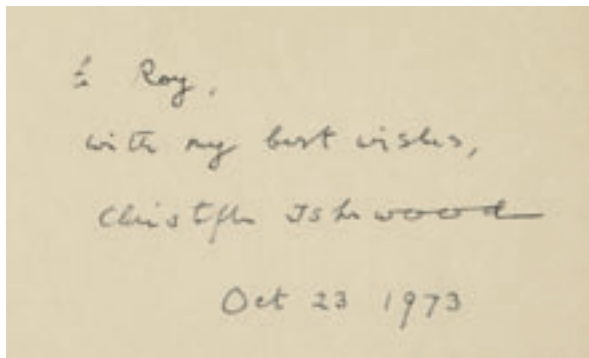 to Roy,
with my best wishes,
Christopher Isherwood
Oct 23 1973